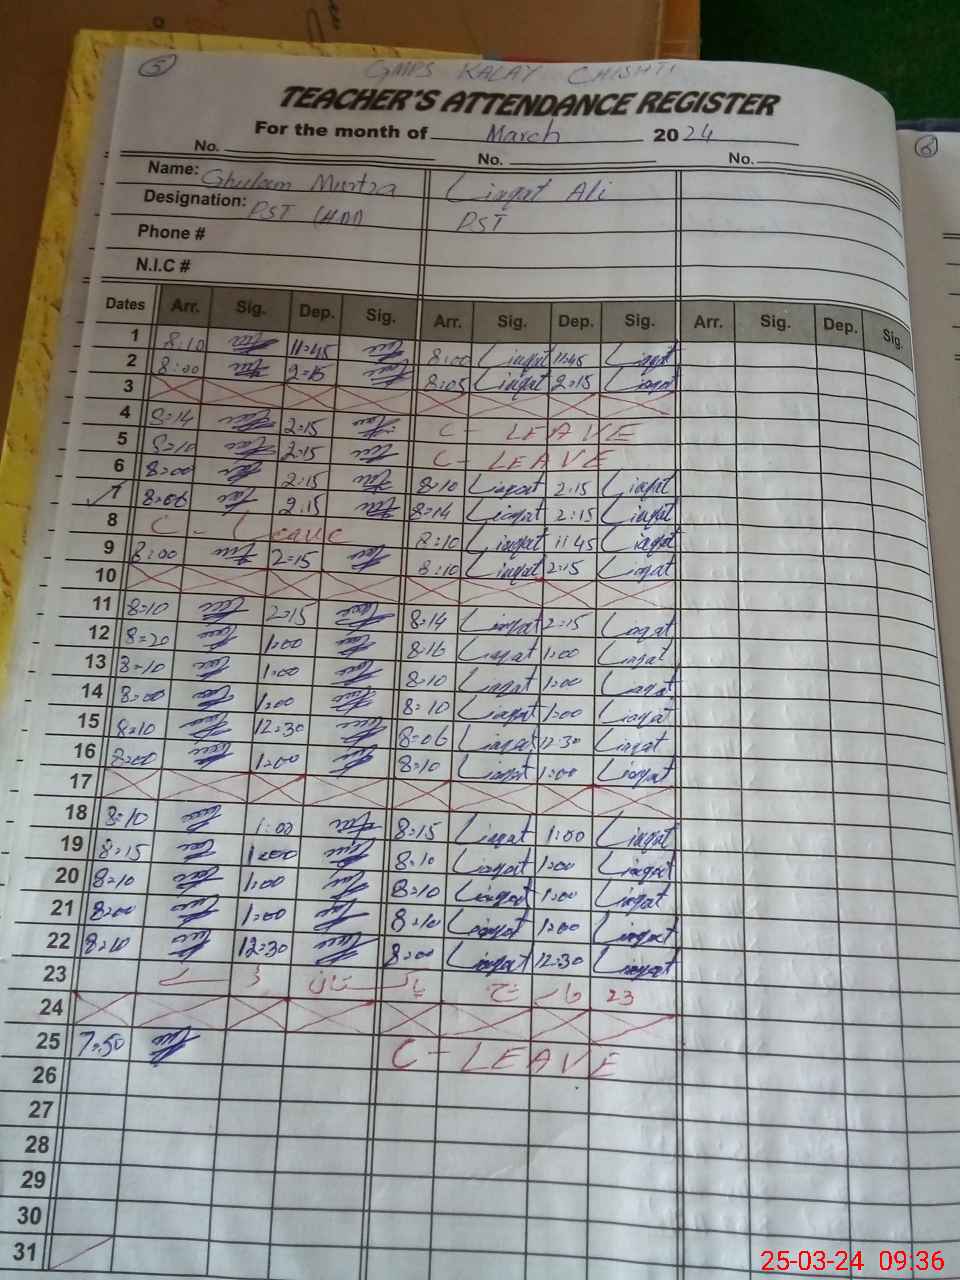 5
GMPS KALAY CHISHTI
TEACHER'S ATTENDANCE REGISTER
For the month of March 2024
6
No. No. No.
Name: Ghulam Murtza Liaqat Ali
Designation: PST PST
Phone #
N.I.C #
Dates Arr. Sig. Dep. Sig. Arr. Sig. Dep. Sig. Arr. Sig. Dep. Sig.
1 8:10 11:45 8:00 Liaqat 11:45 Liaqat
2 8:00 2:15 8:05 Liaqat 2:15 Liaqat
3
4 8:14 2:15 C - LEAVE
5 8:10 2:15 C - LEAVE
6 8:00 2:15 8:10 Liaqat 2:15 Liaqat
7 8:06 2:15 8:14 Liaqat 2:15 Liaqat
8 C - Leave 8:10 Liaqat 11:45 Liaqat
9 8:00 2:15 8:10 Liaqat 2:15 Liaqat
10
11 8:10 2:15 8:14 Liaqat 2:15 Liaqat
12 8:20 1:00 8:16 Liaqat 1:00 Liaqat
13 8:10 1:00 8:10 Liaqat 1:00 Liaqat
14 8:00 1:00 8:10 Liaqat 1:00 Liaqat
15 8:10 12:30 8:06 Liaqat 12:30 Liaqat
16 8:00 1:00 8:10 Liaqat 1:00 Liaqat
17
18 8:10 1:00 8:15 Liaqat 1:00 Liaqat
19 8:15 1:00 8:10 Liaqat 1:00 Liaqat
20 8:10 1:00 8:10 Liaqat 1:00 Liaqat
21 8:00 1:00 8:10 Liaqat 1:00 Liaqat
22 8:10 12:30 8:00 Liaqat 12:30 Liaqat
23 23 مارچ پاکستان ڈے
24
25 7:50 C - LEAVE
26
27
28
29
30
31
25-03-24 09:36